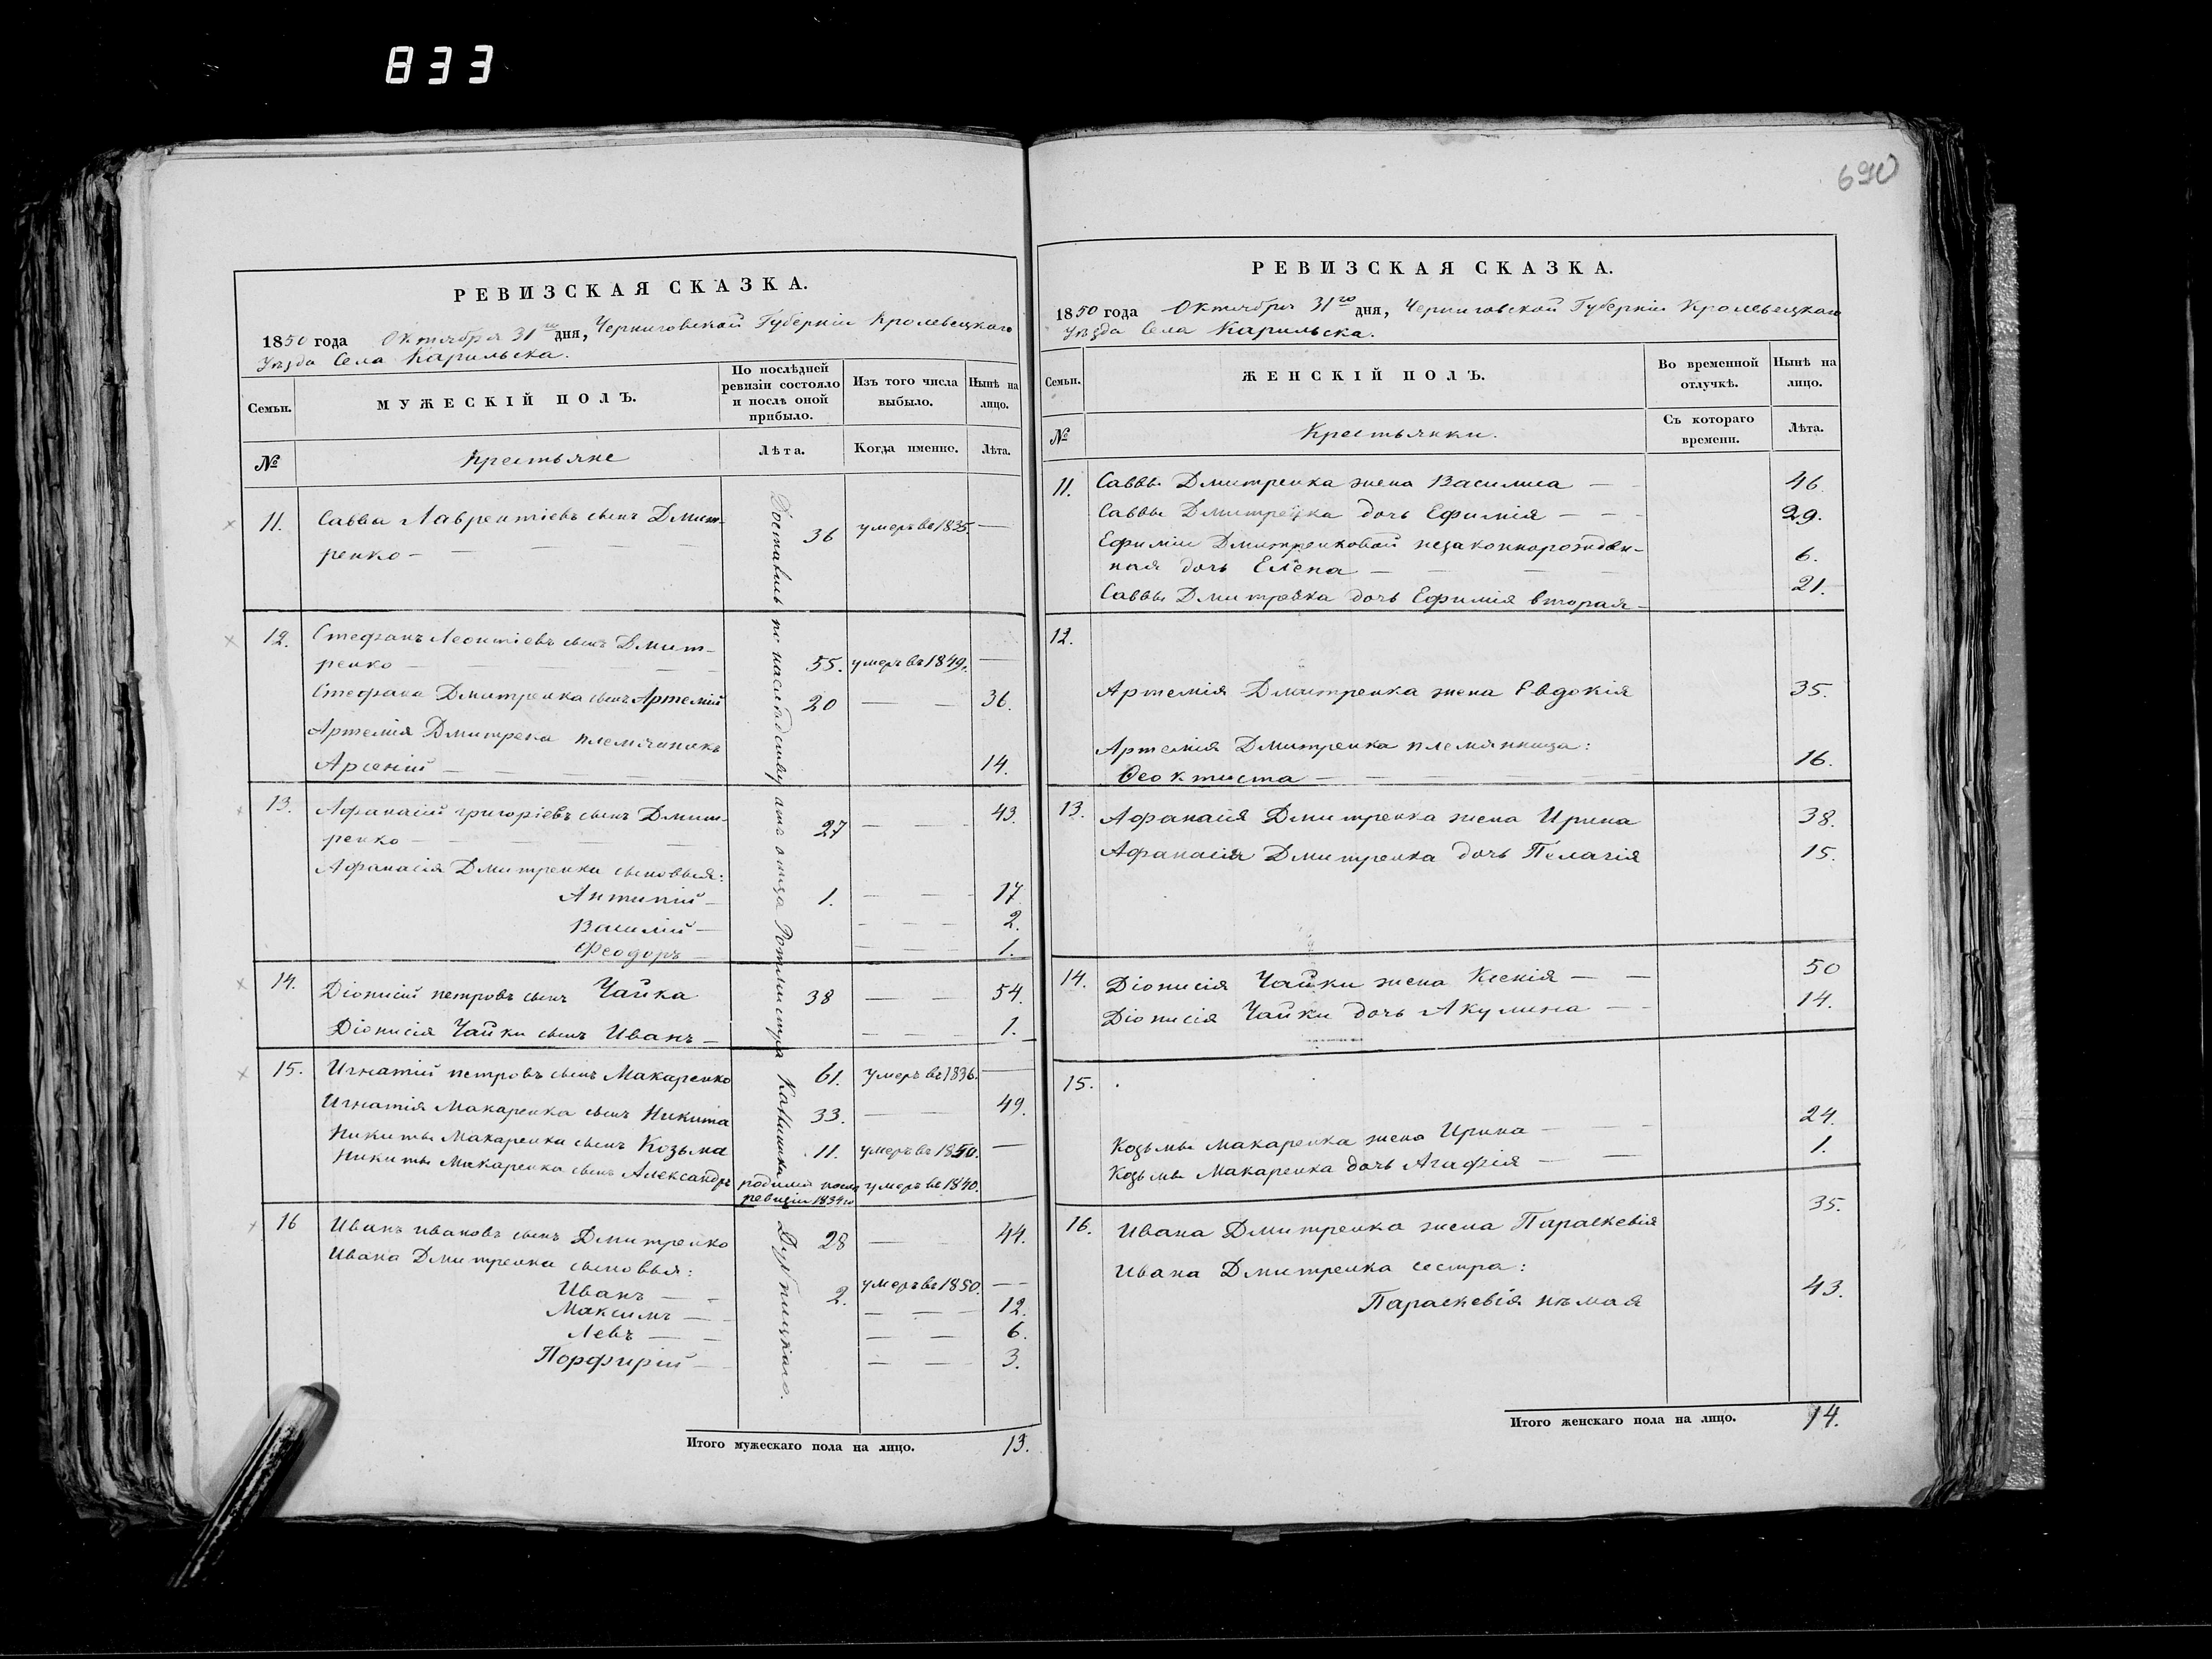 833
690
РЕВИЗСКАЯ СКАЗКА.
1850 года Октября 31го дня, Черниговской Губерніи Кролевецкого
Уѣзда Села Карильска.
Семьи.
МУЖЕСКІЙ ПОЛЪ.
По послѣдней
ревизіи состояло
и послѣ оной
прибыло.
Изъ того числа
выбыло.
Нынѣ на
лицо.
№
Крестьяне
Лѣта.
Когда именно.
Лѣта.
11. Савва Лаврентіевъ сынъ Дмит- 36 умеръ въ 1835. —
ренко —
12. Стефанъ Леонтіевъ сынъ Дмит-
ренко — 55. умеръ въ 1849. —
Стефана Дмитренка сынъ Артемій 20 — — 36.
Артемія Дмитрека племянникъ
Арсеній — 14.
13. Афанасій григоріевъ сынъ Дмит- 43.
ренко — 27 — —
Афанасія Дмитренки сыновья:
Антипій — 1. — — 17.
Василій — — — 2.
Феодоръ — — — 1.
14. Діонисій петровъ сынъ Чайка 38 — — 54.
Діонисія Чайки сынъ Иванъ — — — 1.
15. Игнатій петровъ сынъ Макаренко 61. умеръ въ 1836. —
Игнатія Макаренка сынъ Никита 33. — — 49.
Никиты Макаренки сынъ Козьма 11. умеръ въ 1850. —
Никиты Макаренка сынъ Александръ родился после умеръ въ 1840.
ревизіи 1834го
16 Иванъ ивановъ сынъ Дмитренко 28 — — 44.
Ивана Дмитренка сыновья:
Иванъ — 2. умеръ въ 1850. —
Максимъ — — — 12.
Левъ — — — 6.
Порфирій — — — 3.
Достались по наслѣдству отъ отца Ротмистра
Итого мужескаго пола на лицо. 13.
РЕВИЗСКАЯ СКАЗКА.
1850 года Октября 31го дня, Черниговской Губерніи Кролевецкаго
Уѣзда Села Карильска.
Семьи.
ЖЕНСКІЙ ПОЛЪ.
Во временной
отлучкѣ.
Нынѣ на
лицо.
№
Крестьянки.
Съ котораго
времени.
Лѣта.
11. Саввы Дмитренка жена Василиса — 46.
Саввы Дмитренка дочь Ефимія — 29.
Ефиміи Дмитренковой незаконнорожден-
ная дочь Елена — 6.
Саввы Дмитренка дочь Ефимія вторая — 21.
12.
Артемія Дмитренка жена Евдокія 35.
Артемія Дмитренка племянница:
Ѳеоктиста — 16.
13. Афанасія Дмитренка жена Ирина 38.
Афанасія Дмитренка дочь Пелагія 15.
14. Діонисія Чайки жена Ксенія — 50
Діонисія Чайки дочь Акулина — 14.
15.
Козьмы Макаренка жена Ирина — 24.
Козьмы Макаренка дочь Агафія — 1.
16. Ивана Дмитренка жена Параскевія 35.
Ивана Дмитренка сестра:
Параскевія нѣмая 43.
Итого женскаго пола на лицо. 14.